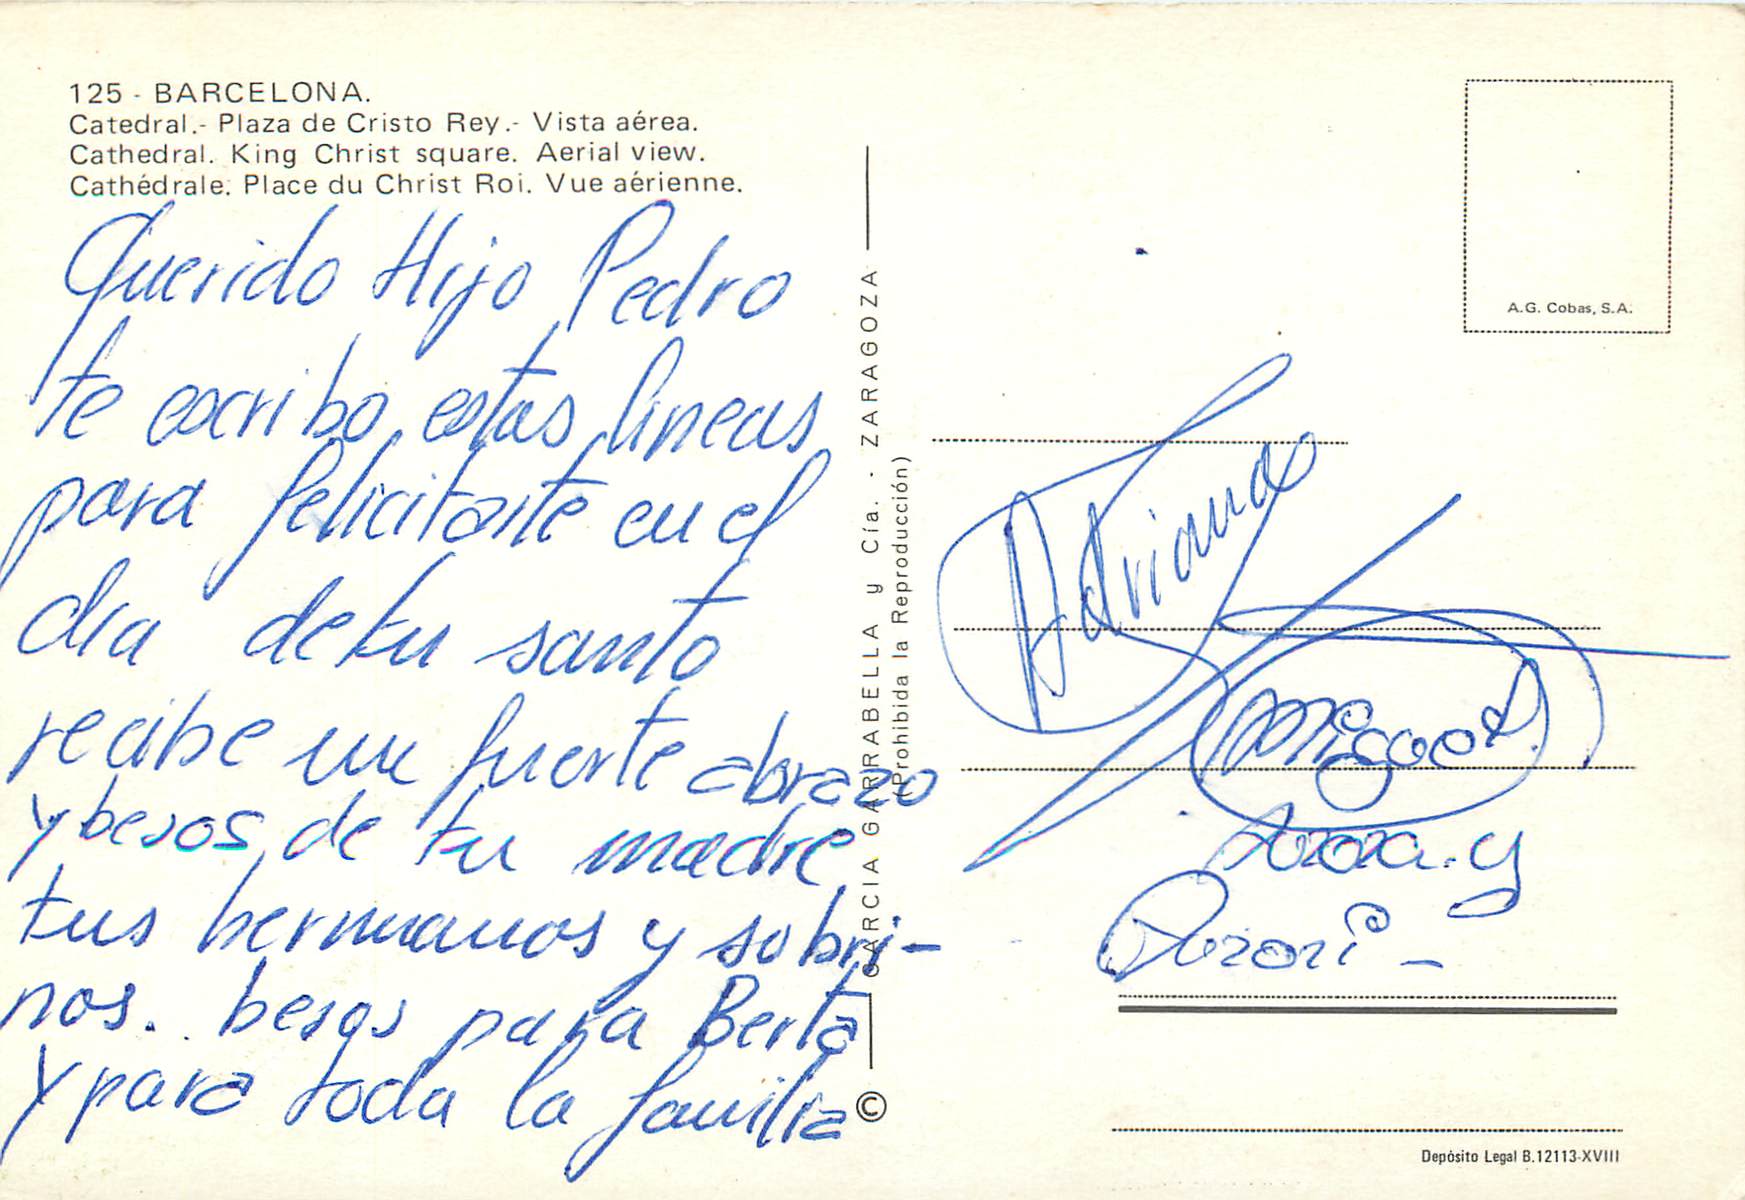 125 - BARCELONA.
Catedral.- Plaza de Cristo Rey.- Vista aérea.
Cathedral. King Christ square. Aerial view.
Cathédrale. Place du Christ Roi. Vue aérienne.
Querido Hijo Pedro
te escribo estas lineas
para felicitarte en el
dia de tu santo
recibe un fuerte abrazo
y besos de tu madre
tus hermanos y sobri-
nos. besos para Berta
y para toda la familia
GARCIA GARRABELLA y Cía. - ZARAGOZA
(Prohibida la Reproducción)
©
A.G. Cobas, S.A.
Adriana
Miguel
y
Depósito Legal B.12113-XVIII